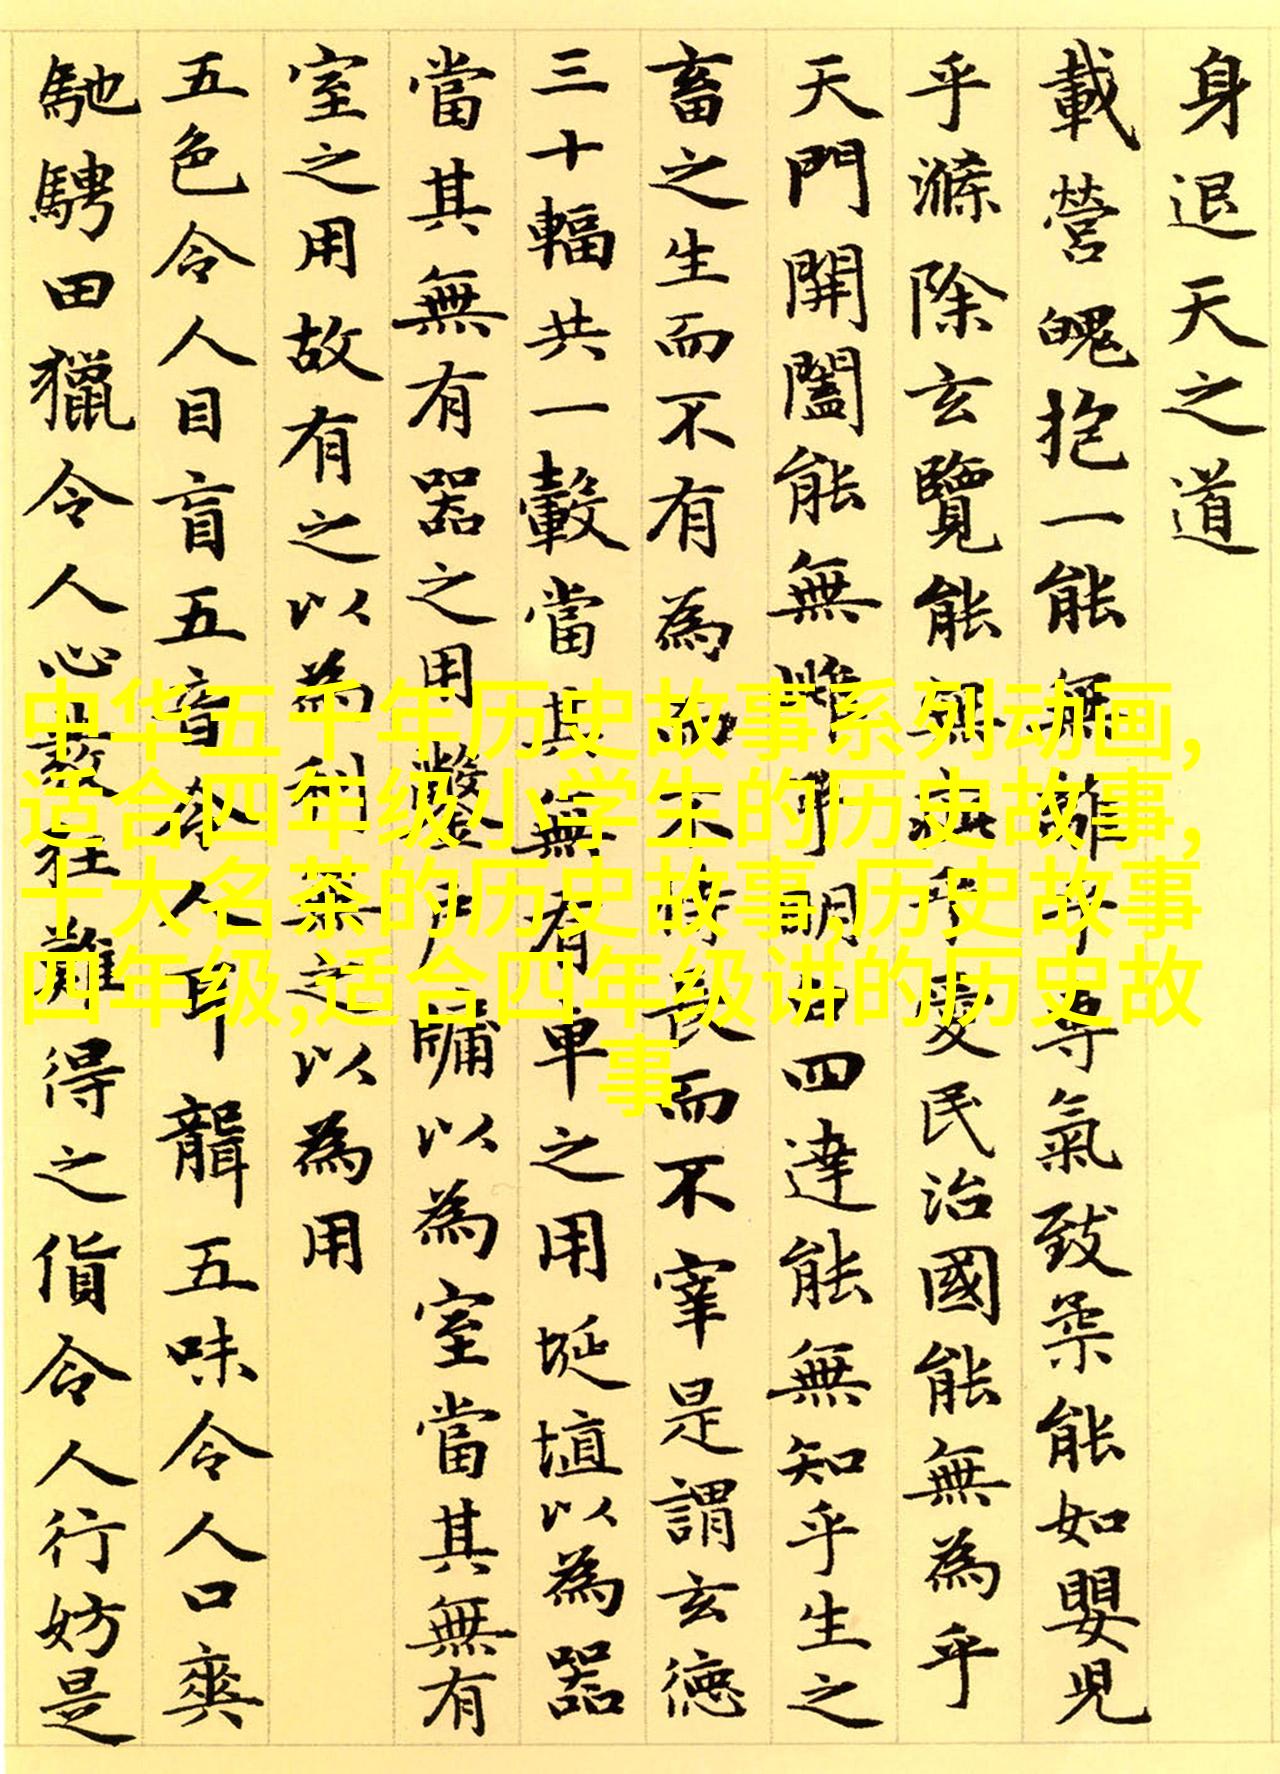 身退天之道
載營魄抱一能無離乎專氣致柔能如嬰兒
乎滌除玄覽能無疵乎愛民治國能無為乎
天門開闔能無雌乎明白四達能無知乎生之
畜之生而不有為而不恃長而不宰是謂玄德
三十輻共一轂當其無有車之用埏埴以為器
當其無有器之用鑿戶牖以為室當其無有
室之用故有之以為利無之以為用
五色令人目盲五音令人耳聾五味令人口爽
馳騁田獵令人心發狂難得之貨令人行妨是
中华五千年历史故事系列动画,
适合四年级小学生的历史故事,
十大名茶的历史故事,历史故事
四年级,适合四年级讲的历史故
事